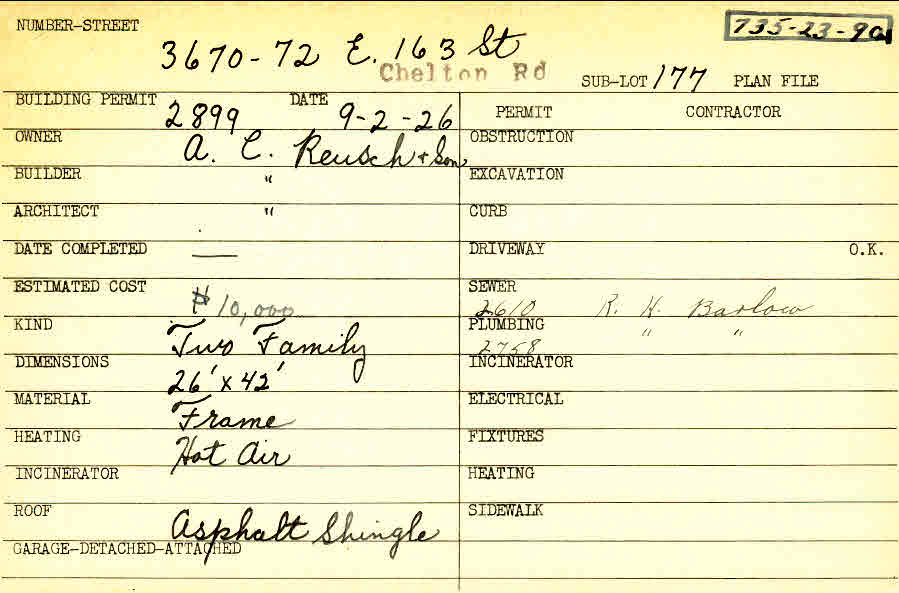 NUMBER-STREET 3670-72 E. 163 St 735-23-90
Chelton Rd SUB-LOT 177 PLAN FILE
BUILDING PERMIT 2899 DATE 9-2-26 PERMIT CONTRACTOR
OWNER A. C. Reusch & Son OBSTRUCTION
BUILDER " EXCAVATION
ARCHITECT " CURB
DATE COMPLETED — DRIVEWAY O.K.
ESTIMATED COST $10,000 SEWER 2610 R. H. Barlow
KIND Two Family PLUMBING 2758 " "
DIMENSIONS 26' x 42' INCINERATOR
MATERIAL Frame ELECTRICAL
HEATING Hot Air FIXTURES
INCINERATOR HEATING
ROOF Asphalt Shingle SIDEWALK
GARAGE-DETACHED-ATTACHED